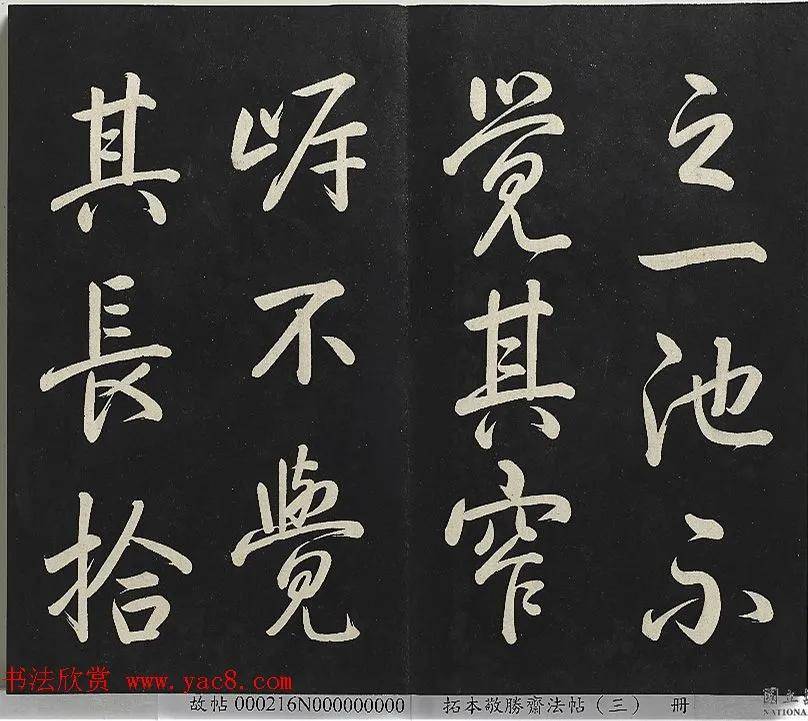 之一池不
覺其窄
岸不覺
其長拾
书法欣赏 www.yac8.com
故帖 000216N000000000 拓本敬勝齋法帖（三） 册
國立
NATIONA